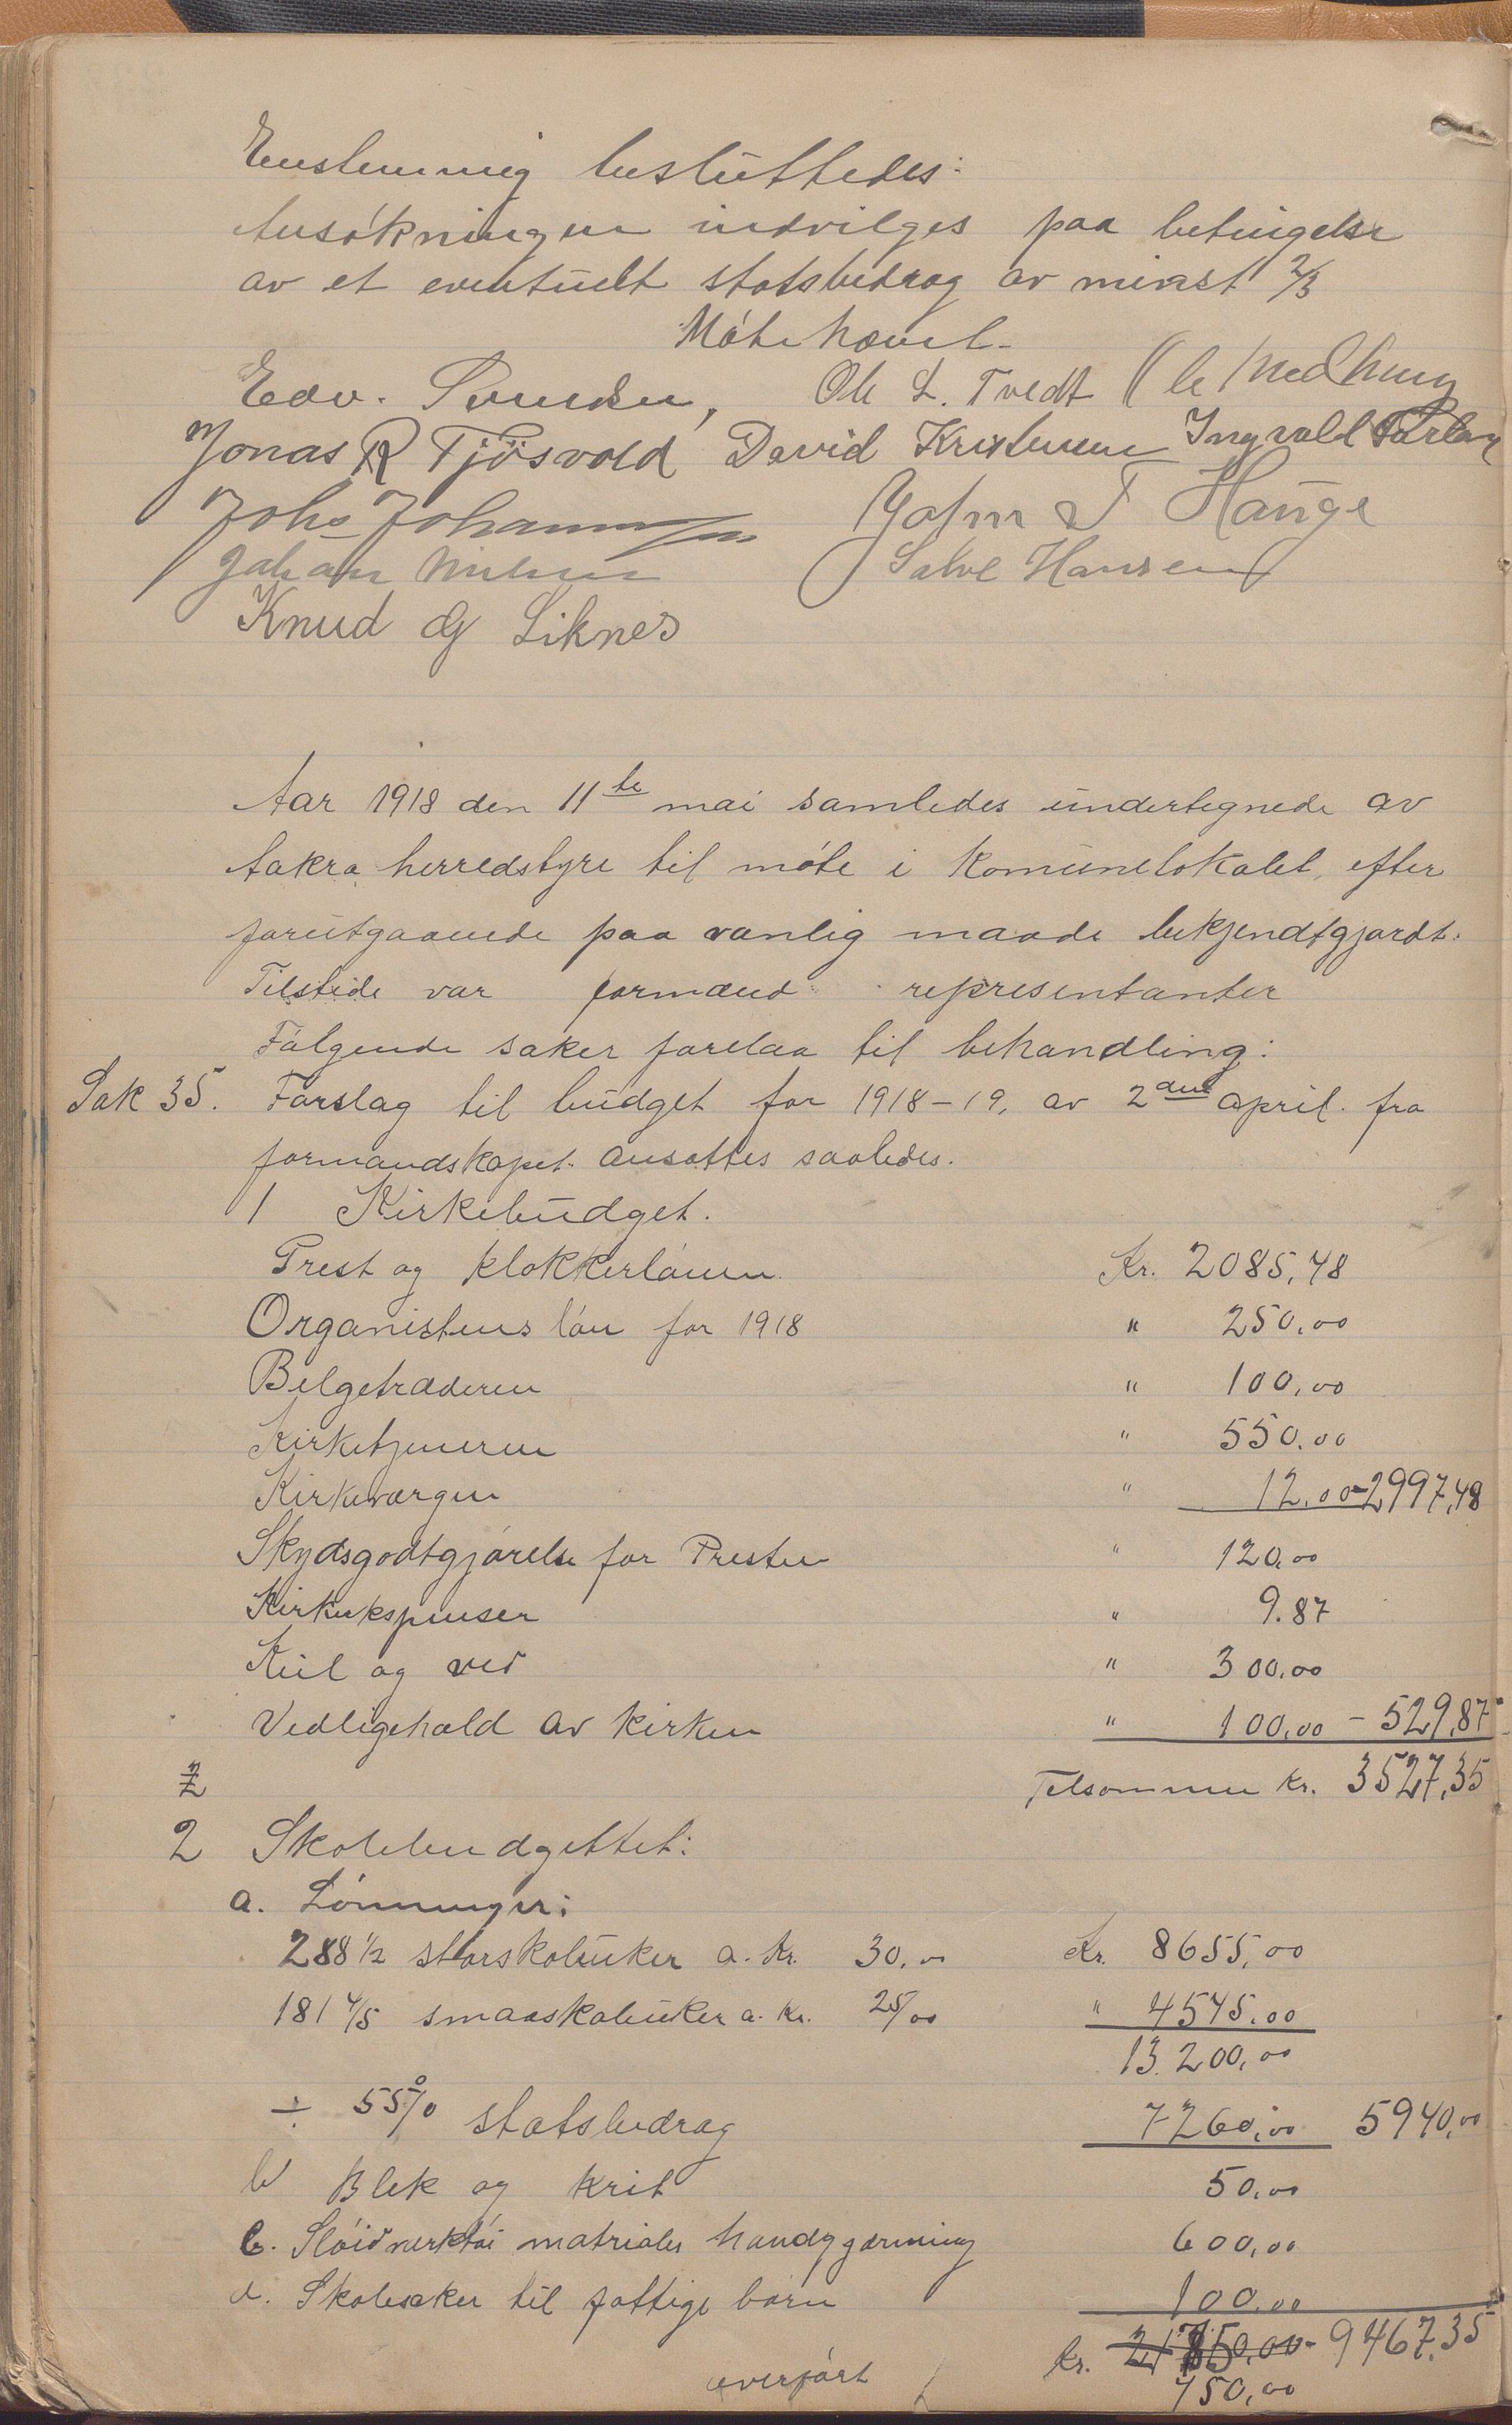 Enstemmig besluttedes:
Ansökningen indvilges paa betingelse
av et eventuelt statsbidrag av minst 2/3
Möte hævet.
Edv. Svendsen, Ole L. Tvedt Ole Medhaug
Jonas R Tjösvold David Kristensen Ingvald Færlan
Johs Johannessen John T Hauge
Johan Nilsen Salve Hansen
Knud G Liknes
Aar 1918 den 11te mai samledes undertegnede av
Aakra herredstyre til möte i Komunelokalet, efter
forutgaaende paa vanlig maade bekjendtgjördt.
Tilstede var formænd representanter
Fölgende saker forelaa til behandling:
Sak 35. Forslag til budget for 1918-19, av 2den april. fra
formandskapet. ansattes saaledes.
1 Kirkebudget.
Prest og klokkerlönnen Kr. 2085,48
Organistens lön for 1918 " 250,00
Belgetræderen " 100,00
Kirketjeneren " 550.00
Kirkeværgen " 12.00 - 2997,48
Skydsgodtgjörelse for Presten " 120,00
Kirkeekspenser " 9.87
Kul og ved " 300.00
Vedligehold av kirken " 100,00 - 529,87
2 Tilsammen Kr. 3527,35
2 Skolebudgettet:
a. Lönninger:
288 1/2 storskoleuker a. Kr. 30.00 Kr. 8655,00
181 4/5 smaaskoleuker a. Kr. 25/00 " 4545.00
13.200,00
÷ 55% statsbidrag 7260,00 5940,00
b Blek og krit 50,00
c. Slöidverktöi matrialer handgjerning 600,00
d. Skolesaker til fattige börn 100.00
Kr. 9467,35
overfört 750,00